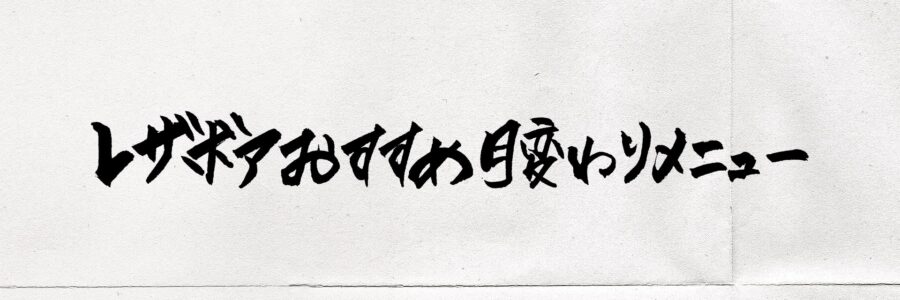 レザボアおすすめ月変わりメニュー